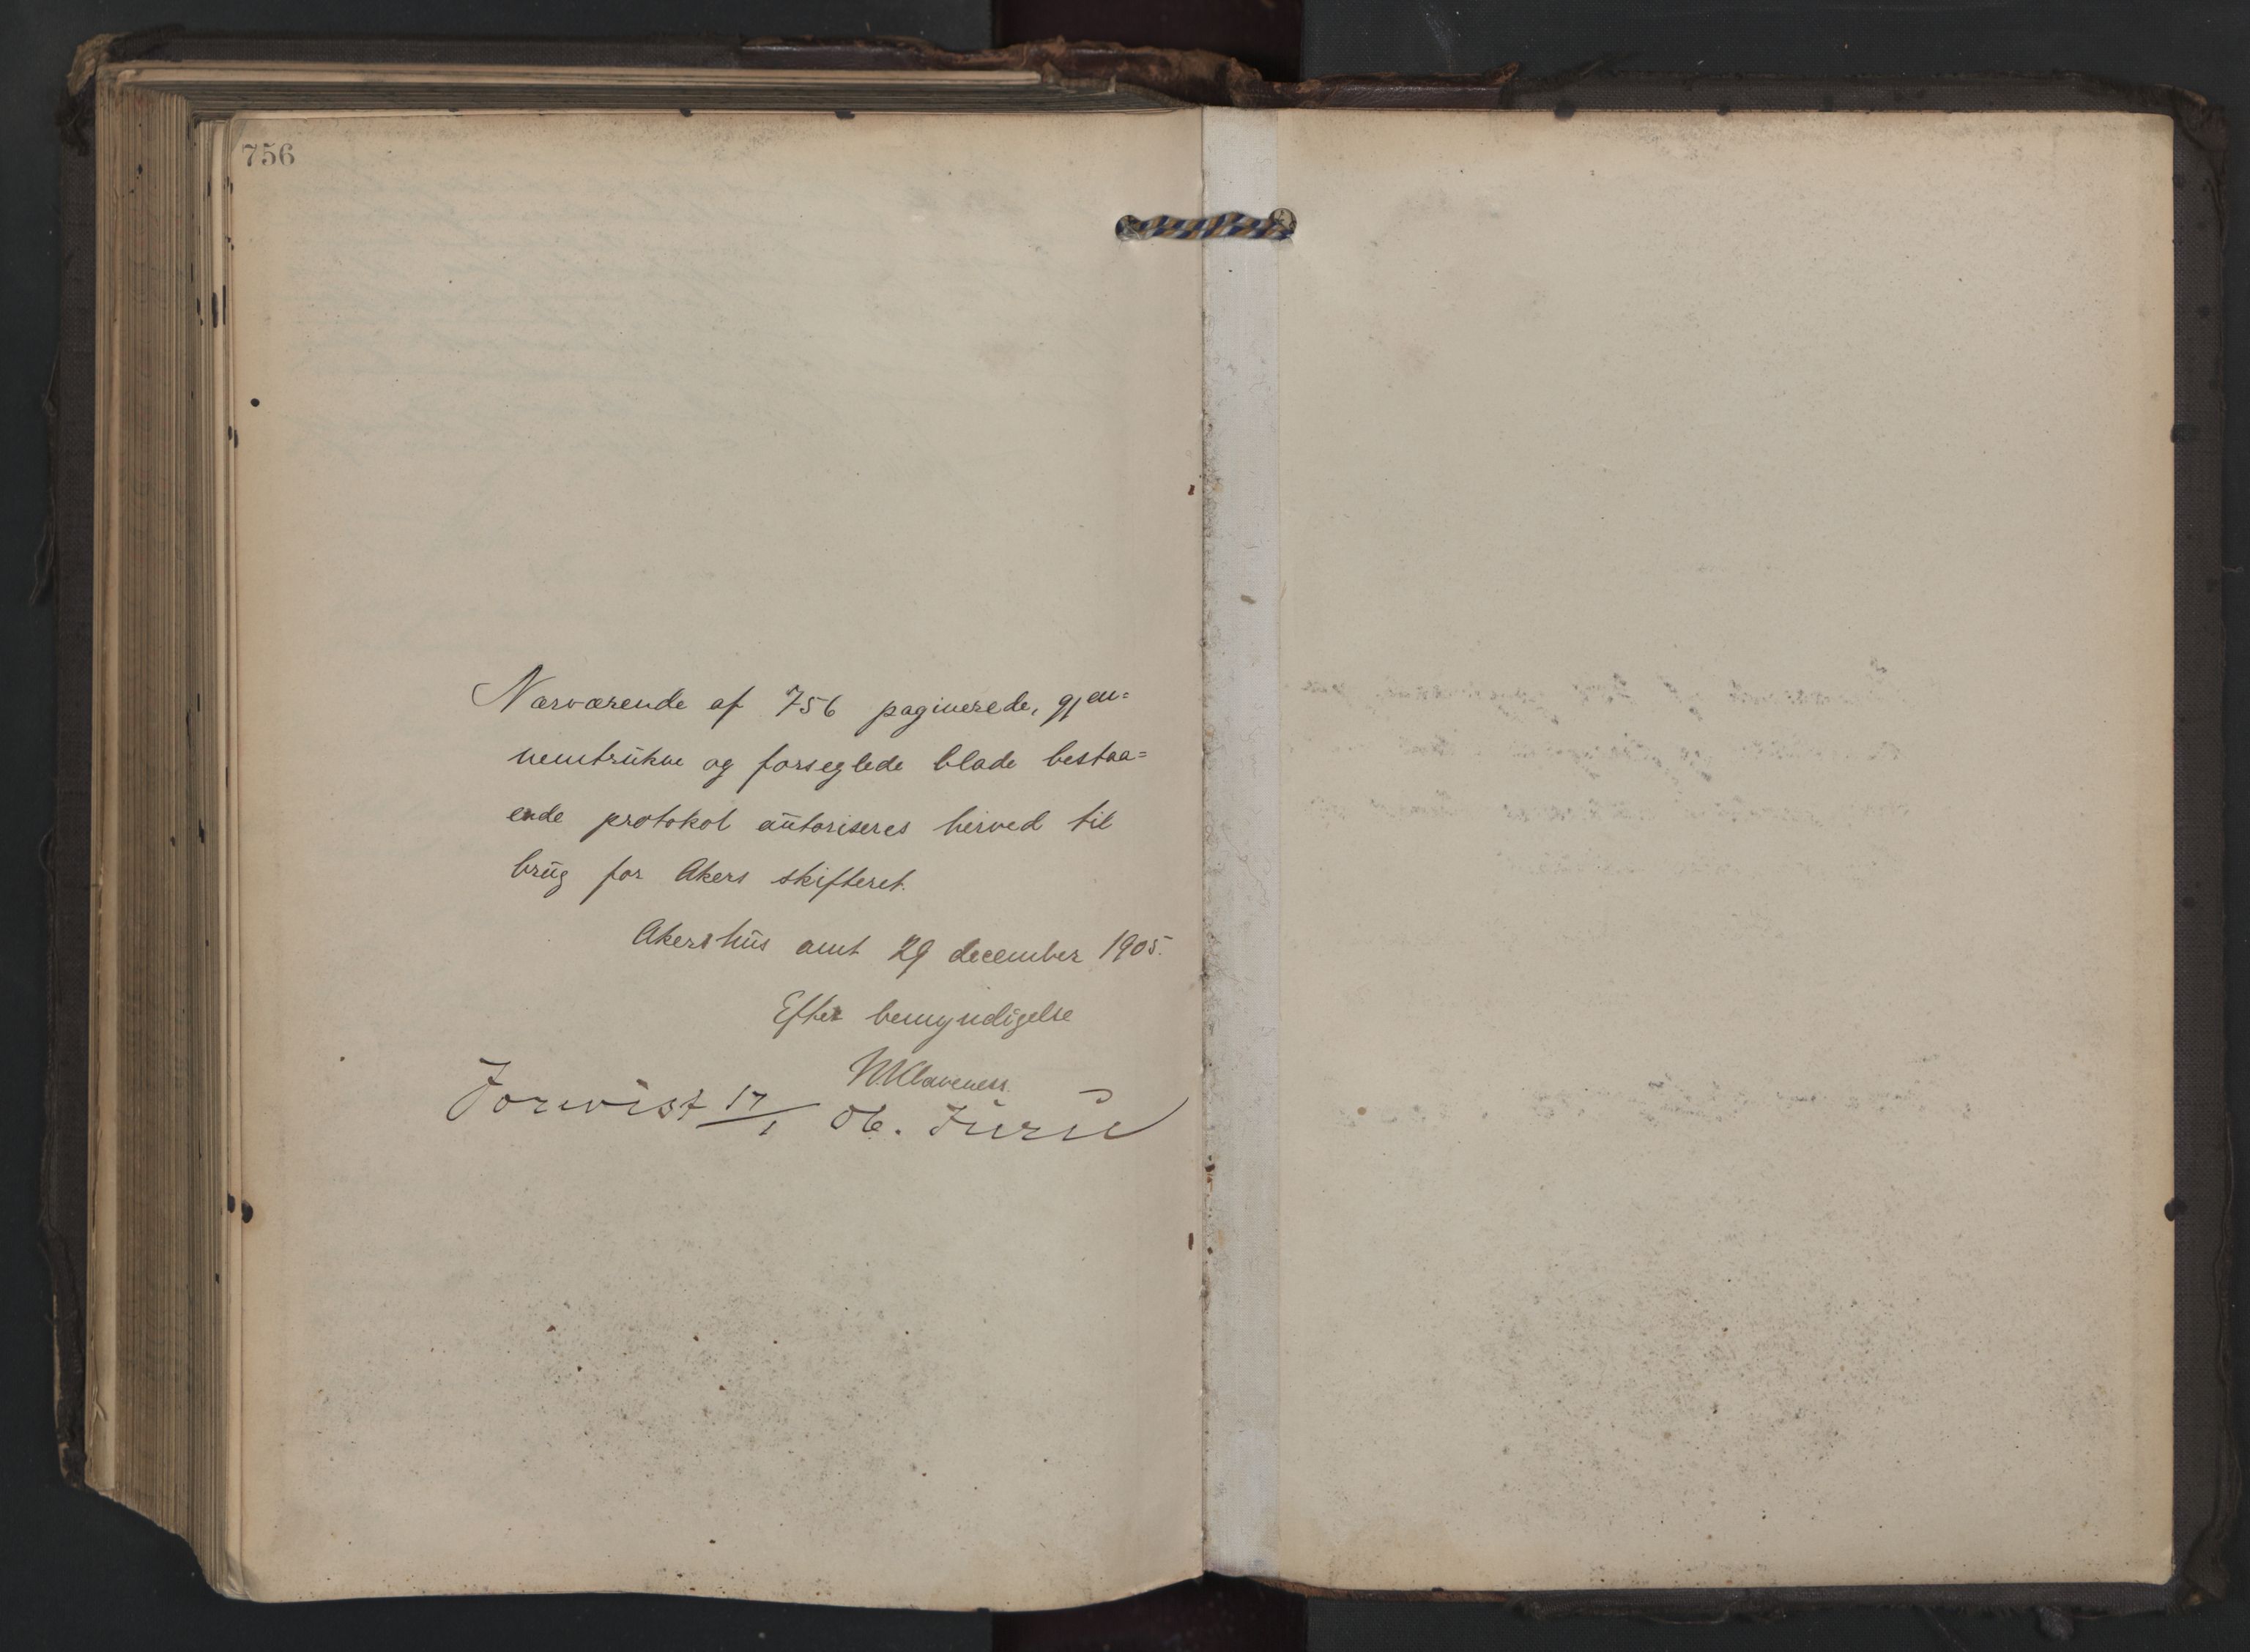 756
Nærværende af 756 paginerede, gjen=
nemtrukne og forseglede blade bestaa=
ende protokol autoriseres herved til
brug for Akers skifteret.
Akershus amt 29 december 1905.
Efter bemyndigelse
N. Klaveness.
Forevist 17/1 06.